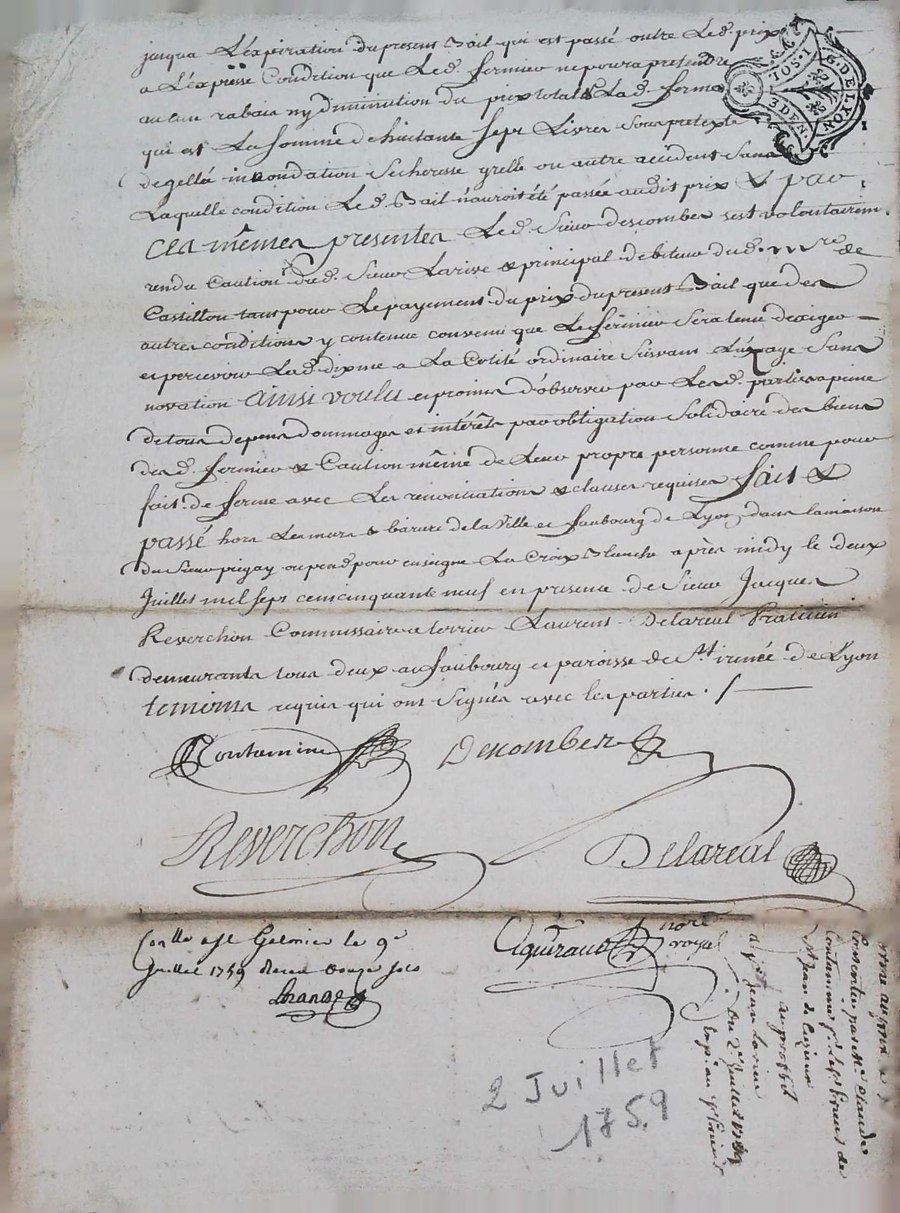 jusqua L'éxpiration du present Bail qui est passé outre Le d. prix
a L'éxpresse Condition que Le d. fermier ne poura pretendre
aucun rabais ny diminution du prix total de La d. ferme
qui est La somme d'huitante sept Livres sous pretexte
de gellé inondation secheresse grelle ou autre accident sans
Laquelle condition Le d. Bail n'auroit été passée audit prix & par
ces mêmes presentes Le d. Sieur descombes s'est volontairem.
rendu Caution du d. Sieur Larive & principal debiteur du d. Mre de
Castillon tant pour Le payement du prix du present Bail que des
autres conditions y contenue convenu que Le fermier sera tenu d'exiger
et percevoir Le d. dixme a La Cotité ordinaire suivant L'uzage sans
novation ainsi voulu et promis d'observer par Les d. parties a peine
de tous depens dommages et intérêts par obligation solidaire des biens
des d. fermier & Caution même de Leur propre personne comme pour
fait de ferme avec Les renonciations & clauses requises fait &
passé hors Les murs & bariere de la Ville et faubourg de Lyon dans la maison
du Sieur pegay ou pend pour enseigne La Croix Blanche après midy le deux
Juillet mil sept cent cinquante neuf en presence de Sieur Jacques
Reverchon Commissaire a terrier Laurent Delareal Praticien
demeurants tous deux au faubourg et paroisse de St irenée de Lyon
temoins requis qui ont signés avec les parties
G. DE LYON
TOS. 1
3 DEN.
Contamine
Descombes
Reverchon
Delareal
Con lle a St Galmier le 9e
Juillet 1759 Receu douze sols
Aguiraud
nore
royal
2 Juillet
1759
Claude
Contamine
St Jean de
au proffit
Jean Larive
du 2e Juillet 1759